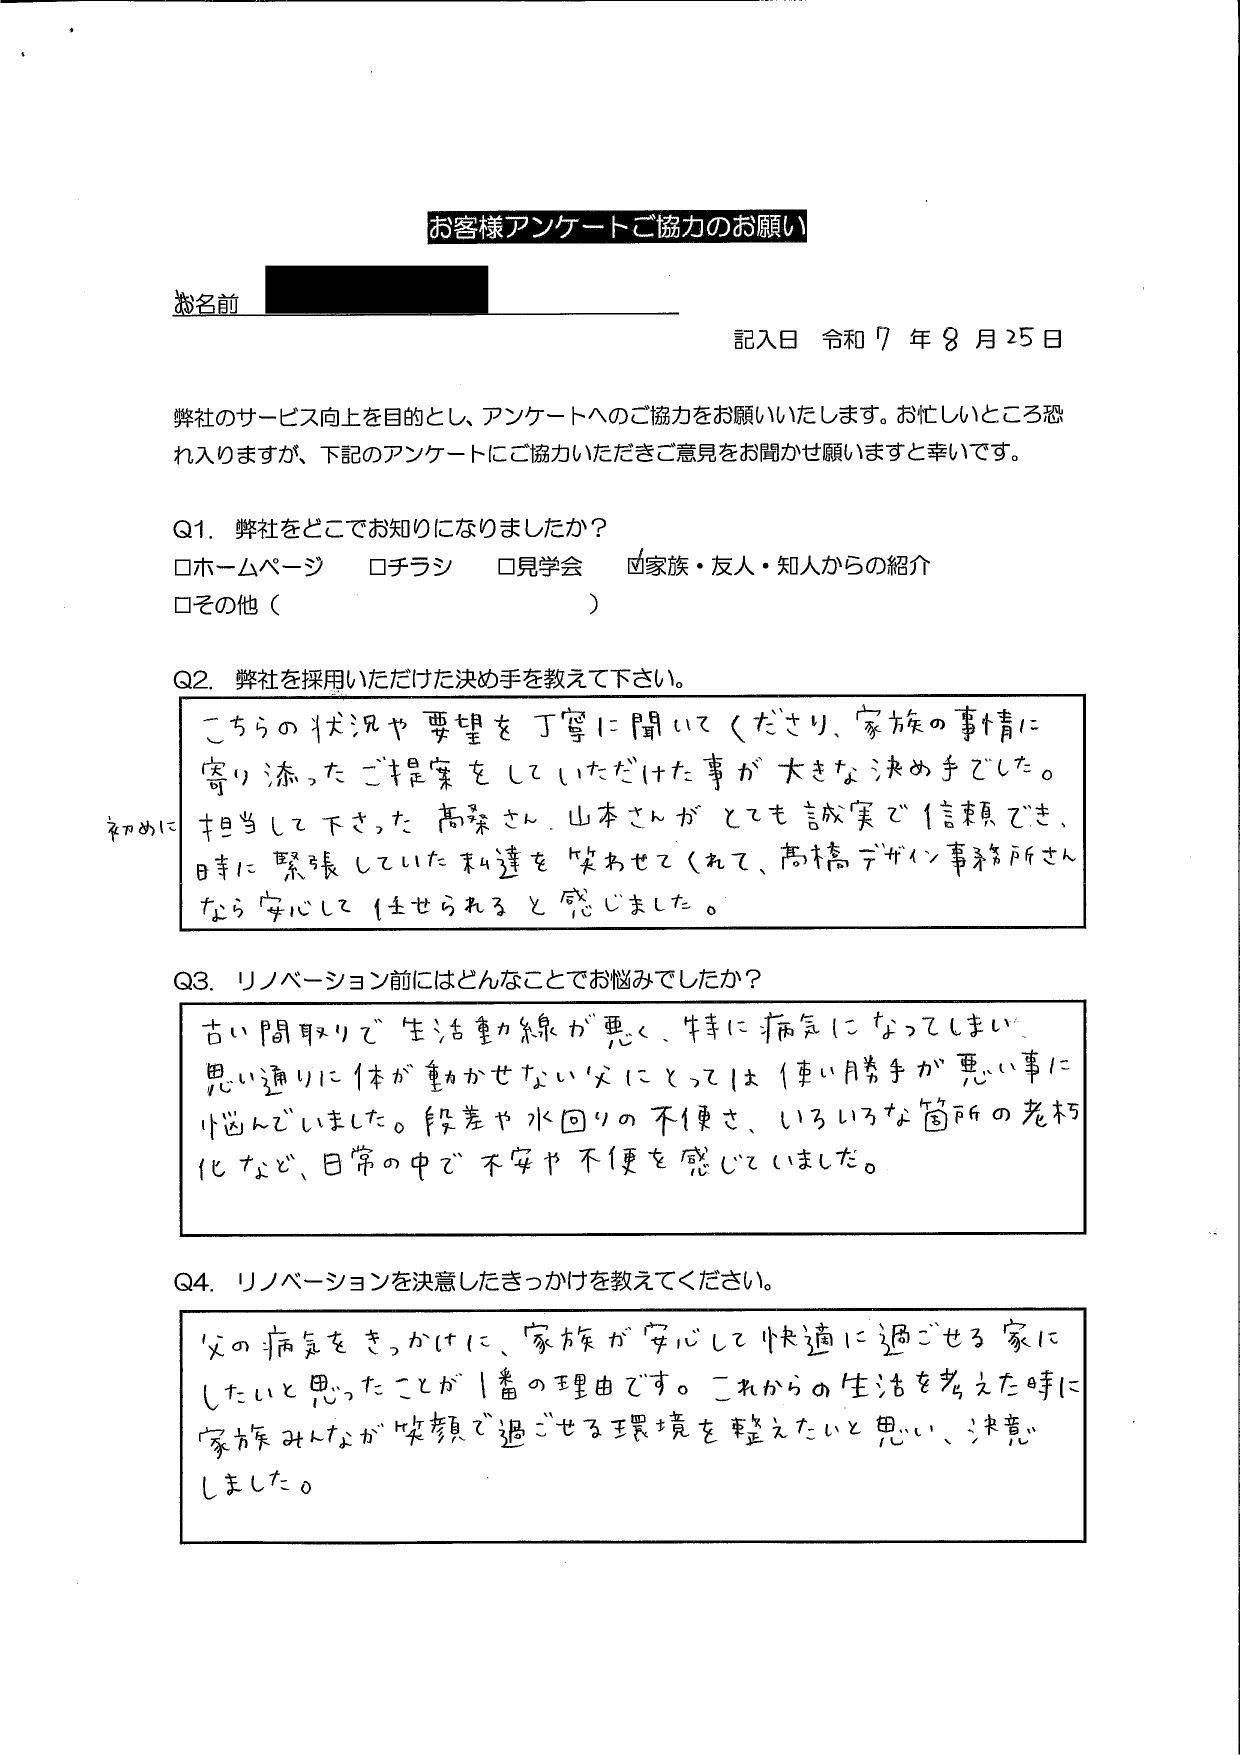 お客様アンケートご協力のお願い
お名前
記入日 令和 7 年 8 月 25 日
弊社のサービス向上を目的とし、アンケートへのご協力をお願いいたします。お忙しいところ恐
れ入りますが、下記のアンケートにご協力いただきご意見をお聞かせ願いますと幸いです。
Q1. 弊社をどこでお知りになりましたか？
□ホームページ □チラシ □見学会 ☑家族・友人・知人からの紹介
□その他（ ）
Q2. 弊社を採用いただけた決め手を教えて下さい。
こちらの状況や要望を丁寧に聞いてくださり、家族の事情に
寄り添ったご提案をしていただけた事が大きな決め手でした。
初めに担当して下さった髙桑さん、山本さんがとても誠実で信頼でき、
時に緊張していた私達を笑わせてくれて、髙橋デザイン事務所さん
なら安心して任せられると感じました。
Q3. リノベーション前にはどんなことでお悩みでしたか？
古い間取りで生活動線が悪く、特に病気になってしまい
思い通りに体が動かせない父にとっては使い勝手が悪い事に
悩んでいました。段差や水回りの不便さ、いろいろな箇所の老朽
化など、日常の中で不安や不便を感じていました。
Q4. リノベーションを決意したきっかけを教えてください。
父の病気をきっかけに、家族が安心して快適に過ごせる家に
したいと思ったことが1番の理由です。これからの生活を考えた時に
家族みんなが笑顔で過ごせる環境を整えたいと思い、決意
しました。